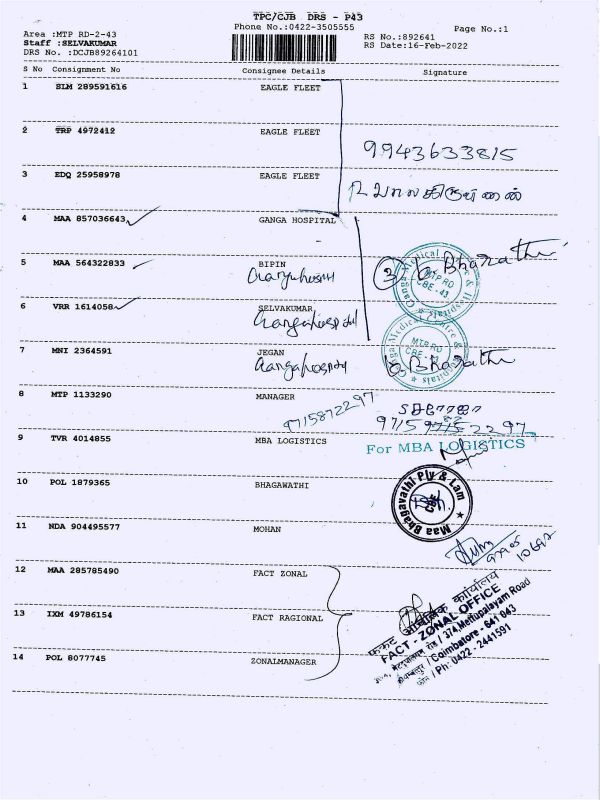 TPC/CJB DRS - P43
Phone No.:0422-3505555
Page No.:1
Area :MTP RD-2-43
RS No.:892641
Staff :SELVAKUMAR
RS Date:16-Feb-2022
DRS No. :DCJB89264101
S No Consignment No Consignee Details Signature
1 SLM 289591616 EAGLE FLEET
2 TRP 4972412 EAGLE FLEET
9943633815
3 EDQ 25958978 EAGLE FLEET
4 MAA 857036643 GANGA HOSPITAL
5 MAA 564322833 BIPIN
3 Bharathi
Ganga Medical Centre & Hospitals
MTP RD
CBE-43
6 VRR 1614058 SELVAKUMAR
Ganga Medical Centre & Hospitals
MTP RD
7 MNI 2364591 JEGAN
Bharathi
8 MTP 1133290 MANAGER
9715872297
9 TVR 4014855 MBA LOGISTICS
For MBA LOGISTICS
10 POL 1879365 BHAGAWATHI
Maa Bhagavathi Ply & Lam
11 NDA 904495577 MOHAN
12 MAA 285785490 FACT ZONAL
13 IXM 49786154 FACT RAGIONAL
FACT - ZONAL OFFICE
374, Mettupalayam Road
Coimbatore - 641 043
Ph: 0422 - 2441591
14 POL 8077745 ZONALMANAGER